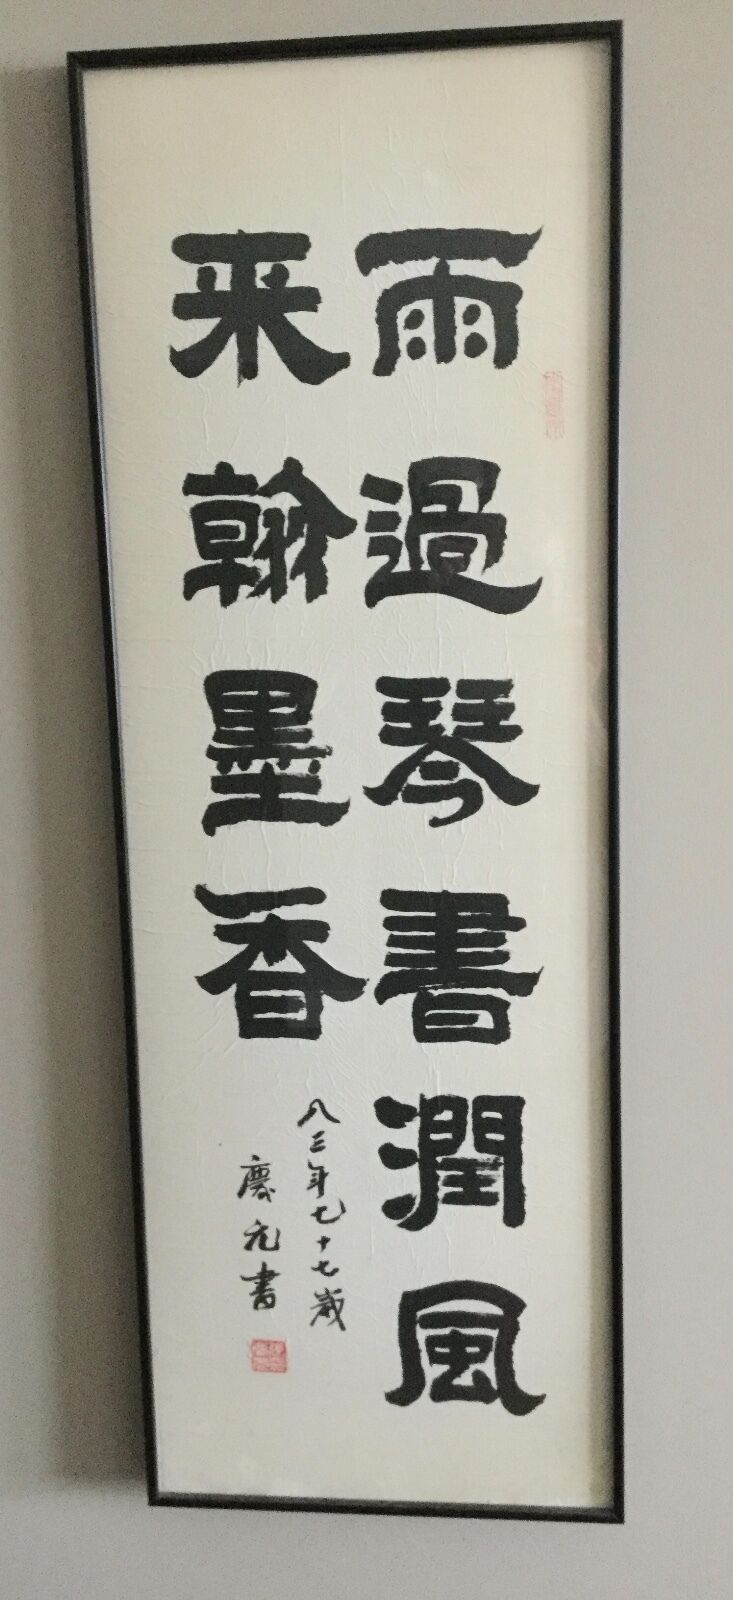 雨過琴書潤風
来翰墨香
八三年七十七歲
慶元書